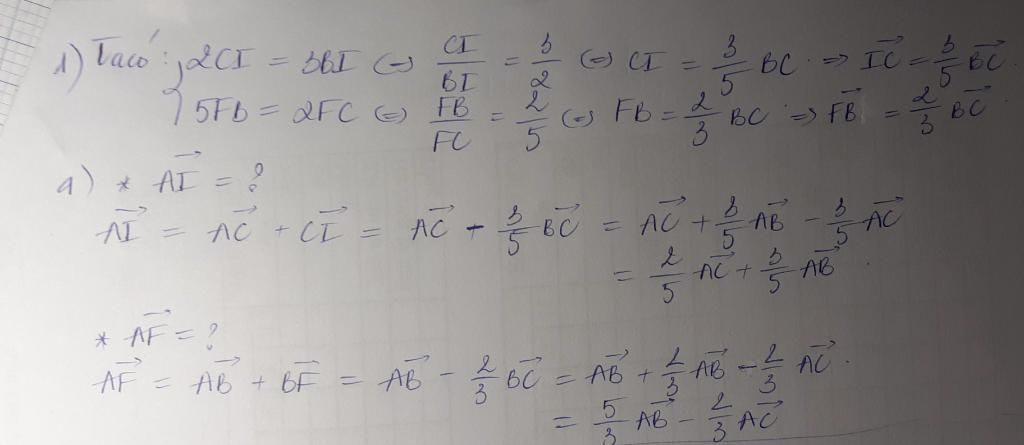 1) Ta có: { 2CI = 3BI (=) CI/BI = 3/2 (=) CI = 3/5 BC. => \vec{IC} = 3/5 \vec{BC}.
5FB = 2FC (=) FB/FC = 2/5 (=) FB = 2/3 BC => \vec{FB} = 2/3 \vec{BC}
a) * \vec{AI} = ?
\vec{AI} = \vec{AC} + \vec{CI} = \vec{AC} - 3/5 \vec{BC} = \vec{AC} + 3/5 \vec{AB} - 3/5 \vec{AC}
= 2/5 \vec{AC} + 3/5 \vec{AB}.
* \vec{AF} = ?
\vec{AF} = \vec{AB} + \vec{BF} = \vec{AB} - 2/3 \vec{BC} = \vec{AB} + 2/3 \vec{AB} - 2/3 \vec{AC}.
= 5/3 \vec{AB} - 2/3 \vec{AC}